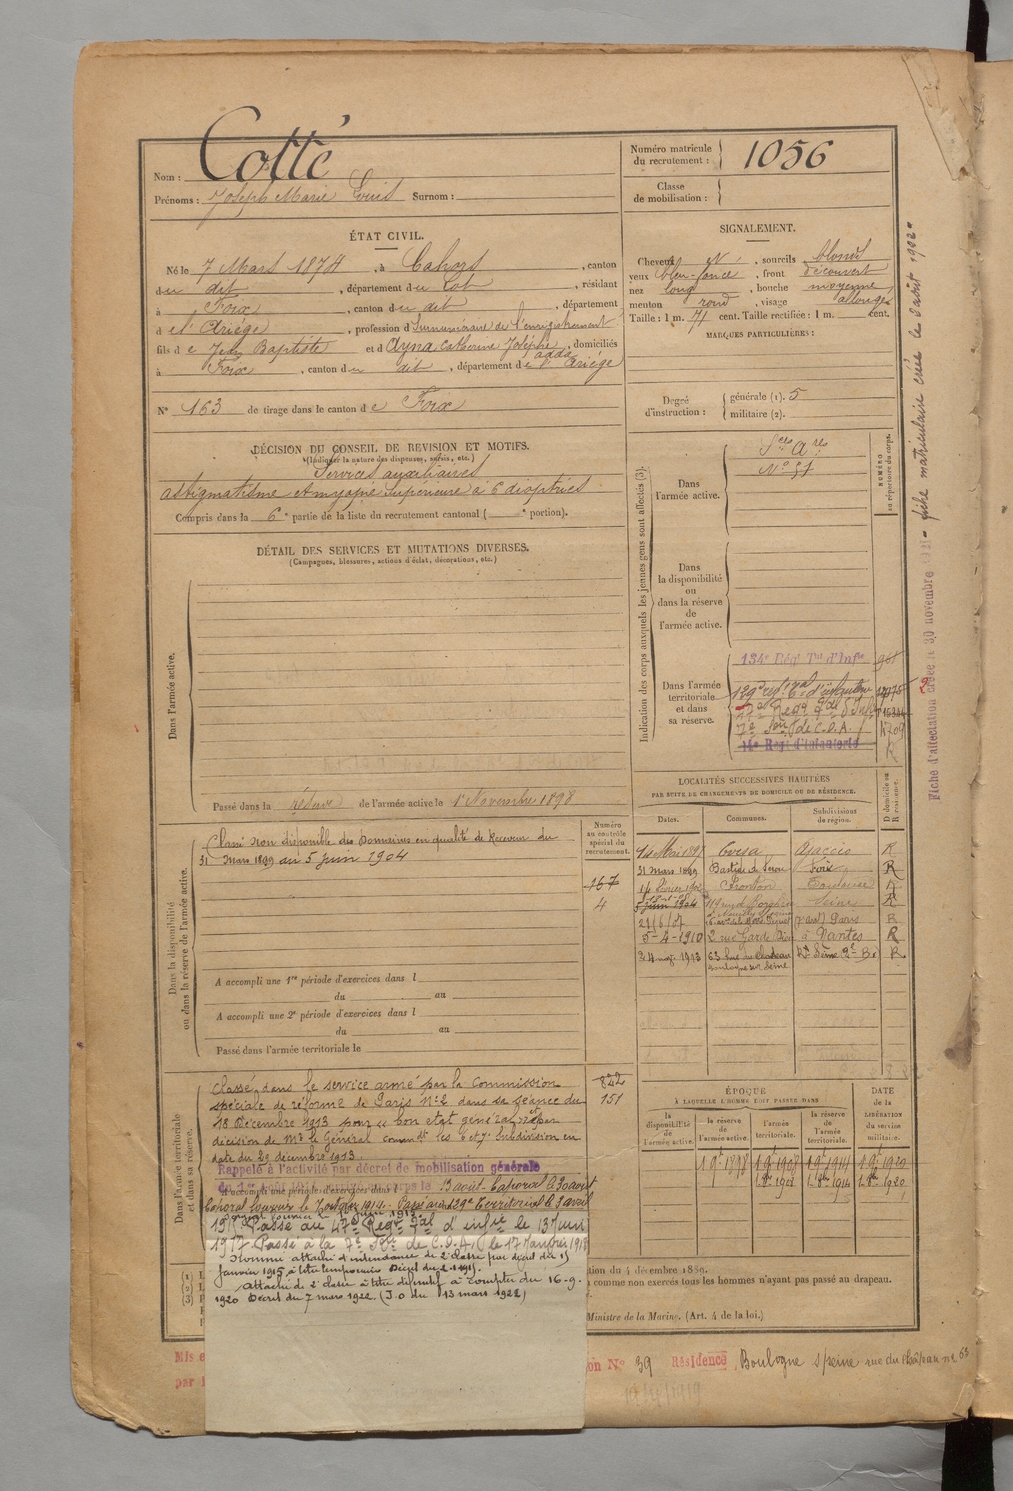 Nom : Cotté
Prénoms : Joseph Marie Louis Surnom :
Numéro matricule du recrutement : 1056
Classe de mobilisation :
ÉTAT CIVIL.
Né le 7 Mars 1874, à Cahors, canton
du dit, département du Lot, résidant
à Foix, canton du dit, département
de l'Ariège, profession de Surnuméraire de l'enregistrement
fils de Jean Baptiste et d Ayna Catherine Josèphe adda, domiciliés
à Foix, canton du dit, département de l'Ariége
N° 163 de tirage dans le canton de Foix
SIGNALEMENT.
Cheveux et, sourcils blonds
yeux bleu-foncé, front découvert
nez long, bouche moyenne
menton rond, visage allongé
Taille : 1 m. 71 cent. Taille rectifiée : 1 m. cent.
MARQUES PARTICULIÈRES :
Degré d'instruction : générale (1). 5
militaire (2).
DÉCISION DU CONSEIL DE REVISION ET MOTIFS.
(Indiquer la nature des dispenses, sursis, etc.)
Services auxiliaires
astigmatisme et myopie supérieure à 6 dioptries
Compris dans la 6e partie de la liste du recrutement cantonal ( e portion).
DÉTAIL DES SERVICES ET MUTATIONS DIVERSES.
(Campagnes, blessures, actions d'éclat, décorations, etc.)
Dans l'armée active.
Passé dans la réserve de l'armée active le 1er Novembre 1898
Indication des corps auxquels les jeunes gens sont affectés (3).
NUMÉRO au répertoire du corps.
Dans l'armée active.
Dans la disponibilité ou dans la réserve de l'armée active.
Dans l'armée territoriale et dans sa réserve.
134e Régt Tal d'Infie
129e régt Tal d'infanterie
fiche matriculaire créée le 2 août 1922
Fiche d'affectation créée le 30 novembre
LOCALITÉS SUCCESSIVES HABITÉES
PAR SUITE DE CHANGEMENTS DE DOMICILE OU DE RÉSIDENCE.
Dates. Communes. Subdivisions de région. D domicile ou R résidence.
14 Mai 1897 Evisa Ajaccio R
31 mars 1899 Bastide de Serou Foix R
14 février 1902 Fronton Toulouse R
5 juin 1904 Seine R
21/6/07 Paris R
5-4-1910 2 rue Garde Dieu à Nantes R
24 mai 1913 63 Rue du Chateau Boulogne sur Seine R
Dans la disponibilité ou dans la réserve de l'armée active.
Numéro au contrôle spécial du recrutement.
Classé non disponible des Domaines en qualité de Receveur du
31 Mars 1899 au 5 juin 1904
167
4
A accompli une 1re période d'exercices dans l
du au
A accompli une 2e période d'exercices dans l
du au
Passé dans l'armée territoriale le
Dans l'armée territoriale et dans sa réserve.
822
151
Classé dans le service armé par la Commission
spéciale de réforme de Paris N° 2 dans sa séance du
18 Décembre 1913 pour « bon état général » et par
décision de Mr le Général comandt les 6 et 7e Subdivision en
date du 29 décembre 1913.
Rappelé à l'activité par décret de mobilisation générale
du 1er Août 1914, arrivé au corps le 13 août - Caporal le 30 août
A accompli une période d'exercices dans l
Caporal fourrier le 7 octobre 1914. Passé au 129e Territorial le 3 avril
Passé au 47e Regt Tal d'infie le 13 Juin
1917 Passé à la 7e Son de C.O.A. le 17 Janvier 1918
Nommé attaché d'intendance de 2e classe par décret du 15
Janvier 1915 à titre temporaire Décret du 2-1-1915.
Attaché de 2e classe à titre définitif à compter du 16-9-
1920 Décret du 7 mars 1922. (J.O du 13 mars 1922)
ÉPOQUE
À LAQUELLE L'HOMME DOIT PASSER DANS
la disponibilité de l'armée active.
la réserve de l'armée active.
l'armée territoriale.
la réserve de l'armée territoriale.
DATE de la LIBÉRATION du service militaire.
1 9e 1898 1 9e 1908 1 9e 1914 1 9e 1920
1 8e 1914 1 8e 1920
tion du 4 décembre 1889.
comme non exercés tous les hommes n'ayant pas passé au drapeau.
Ministre de la Marine. (Art. 4 de la loi.)
Mis e
par
on N° 39 Résidence Boulogne s/seine rue du Château n° 63